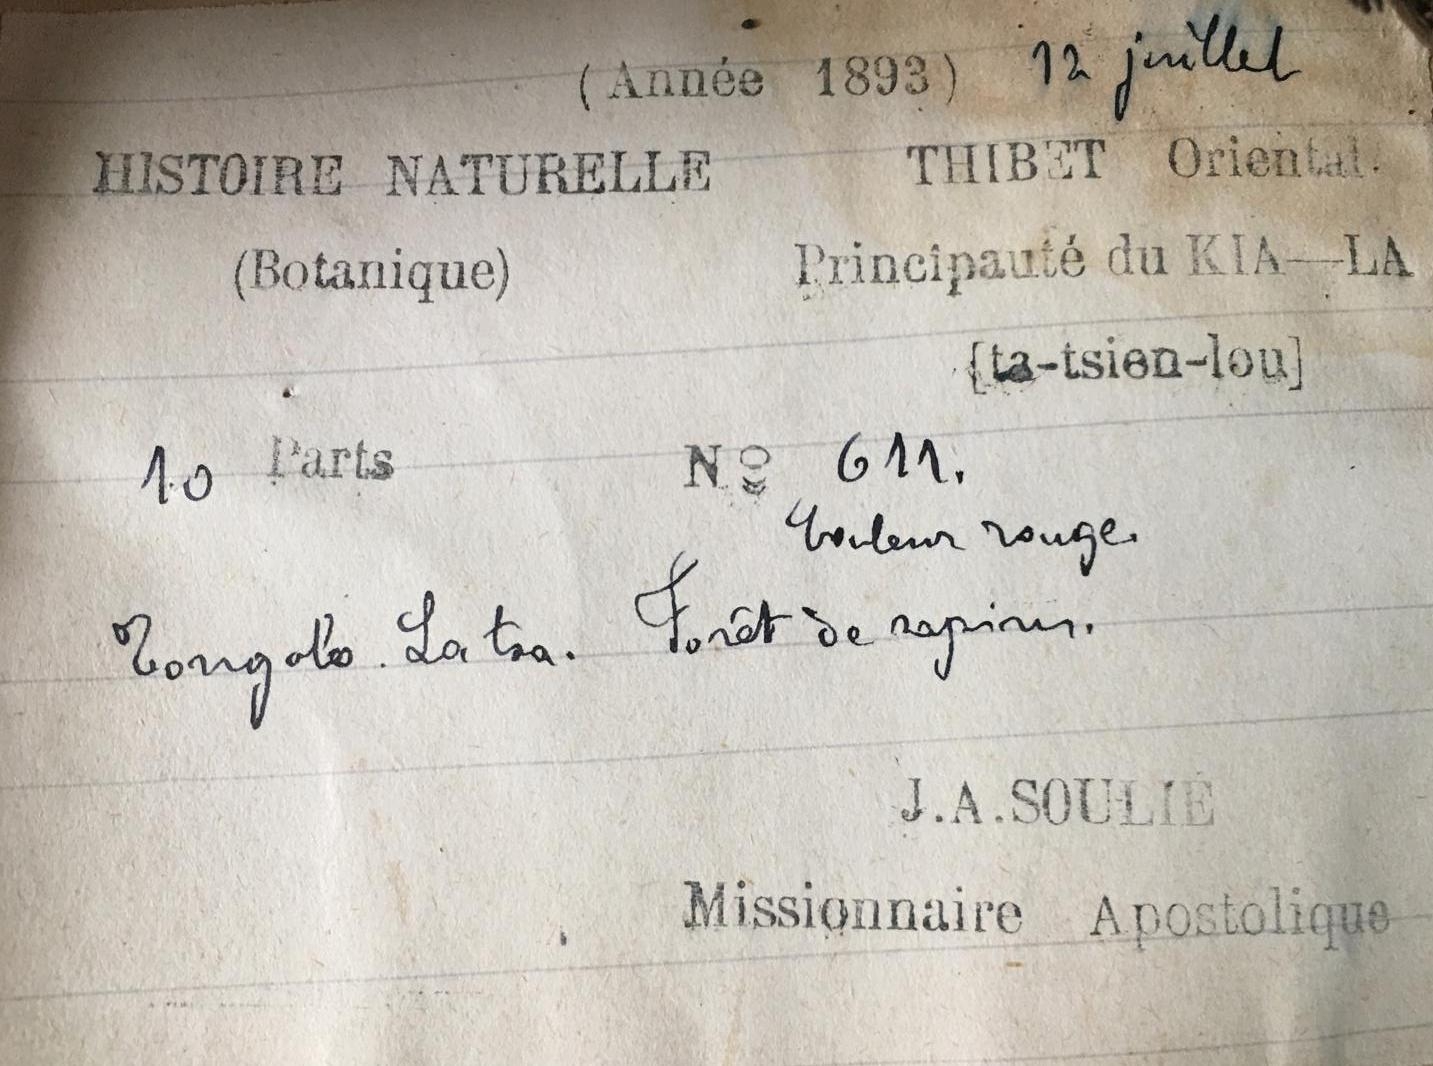 (Année 1893) 12 juillet
HISTOIRE NATURELLE THIBET Oriental.
(Botanique) Principauté du KIA—LA
[ta-tsien-lou]
10 Parts Nº 611.
Couleur rouge.
Tongolo. La tsa. Forêt de sapins.
J.A.SOULIÉ
Missionnaire Apostolique